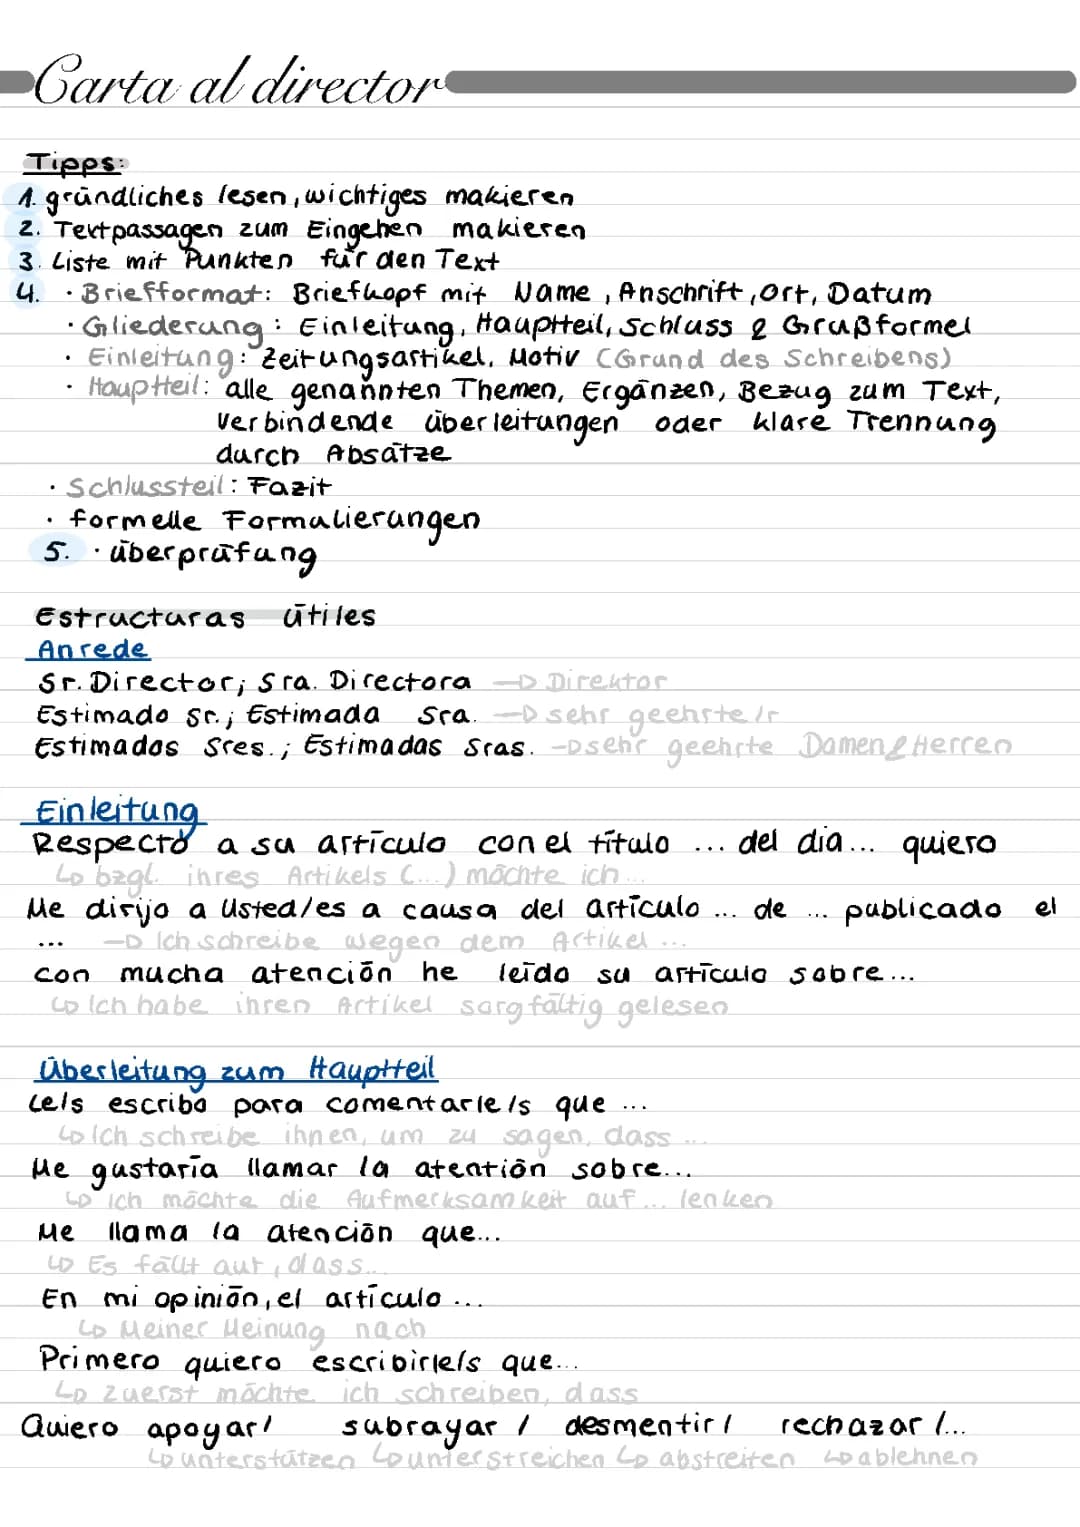 Carta al director
Tipps:
1. gründliches lesen, wichtiges makieren
2. Textpassagen zum Eingehen makieren
3. Liste mit Punkten für den Text
4. · Briefformat: Briefkopf mit Name, Anschrift, Ort, Datum
· Gliederung: Einleitung, Hauptteil, Schluss & Grußformel
· Einleitung: Zeitungsartikel, Motiv (Grund des Schreibens)
· Hauptteil: alle genannten Themen, Ergänzen, Bezug zum Text,
Verbindende überleitungen oder klare Trennung
durch Absätze
· Schlussteil: Fazit
· formelle Formulierungen
5. · überprüfung
Estructuras útiles
Anrede
Sr. Director; Sra. Directora → Direktor
Estimado Sr.; Estimada Sra. → sehr geehrte/r
Estimados Sres.; Estimadas Sras. → sehr geehrte Damen & Herren
Einleitung
Respecto a su artículo con el título ... del día ... quiero
↳ bzgl. ihres Artikels (...) möchte ich ...
Me dirijo a Usted/es a causa del artículo ... de ... publicado el
... → Ich schreibe wegen dem Artikel ...
con mucha atención he leído su artículo sobre ...
↳ Ich habe ihren Artikel sorgfältig gelesen
Überleitung zum Hauptteil
Le/s escribo para comentarle/s que ...
↳ Ich schreibe ihnen, um zu sagen, dass ...
Me gustaría llamar la atentión sobre...
↳ Ich möchte die Aufmerksamkeit auf ... lenken
Me llama la atención que...
↳ Es fällt auf, dass...
En mi opinión, el artículo ...
↳ Meiner Meinung nach
Primero quiero escribirle/s que...
↳ Zuerst möchte ich schreiben, dass
Quiero apoyar/ subrayar / desmentir / rechazar /...
↳ unterstützen ↳ unterstreichen ↳ abstreiten ↳ ablehnen